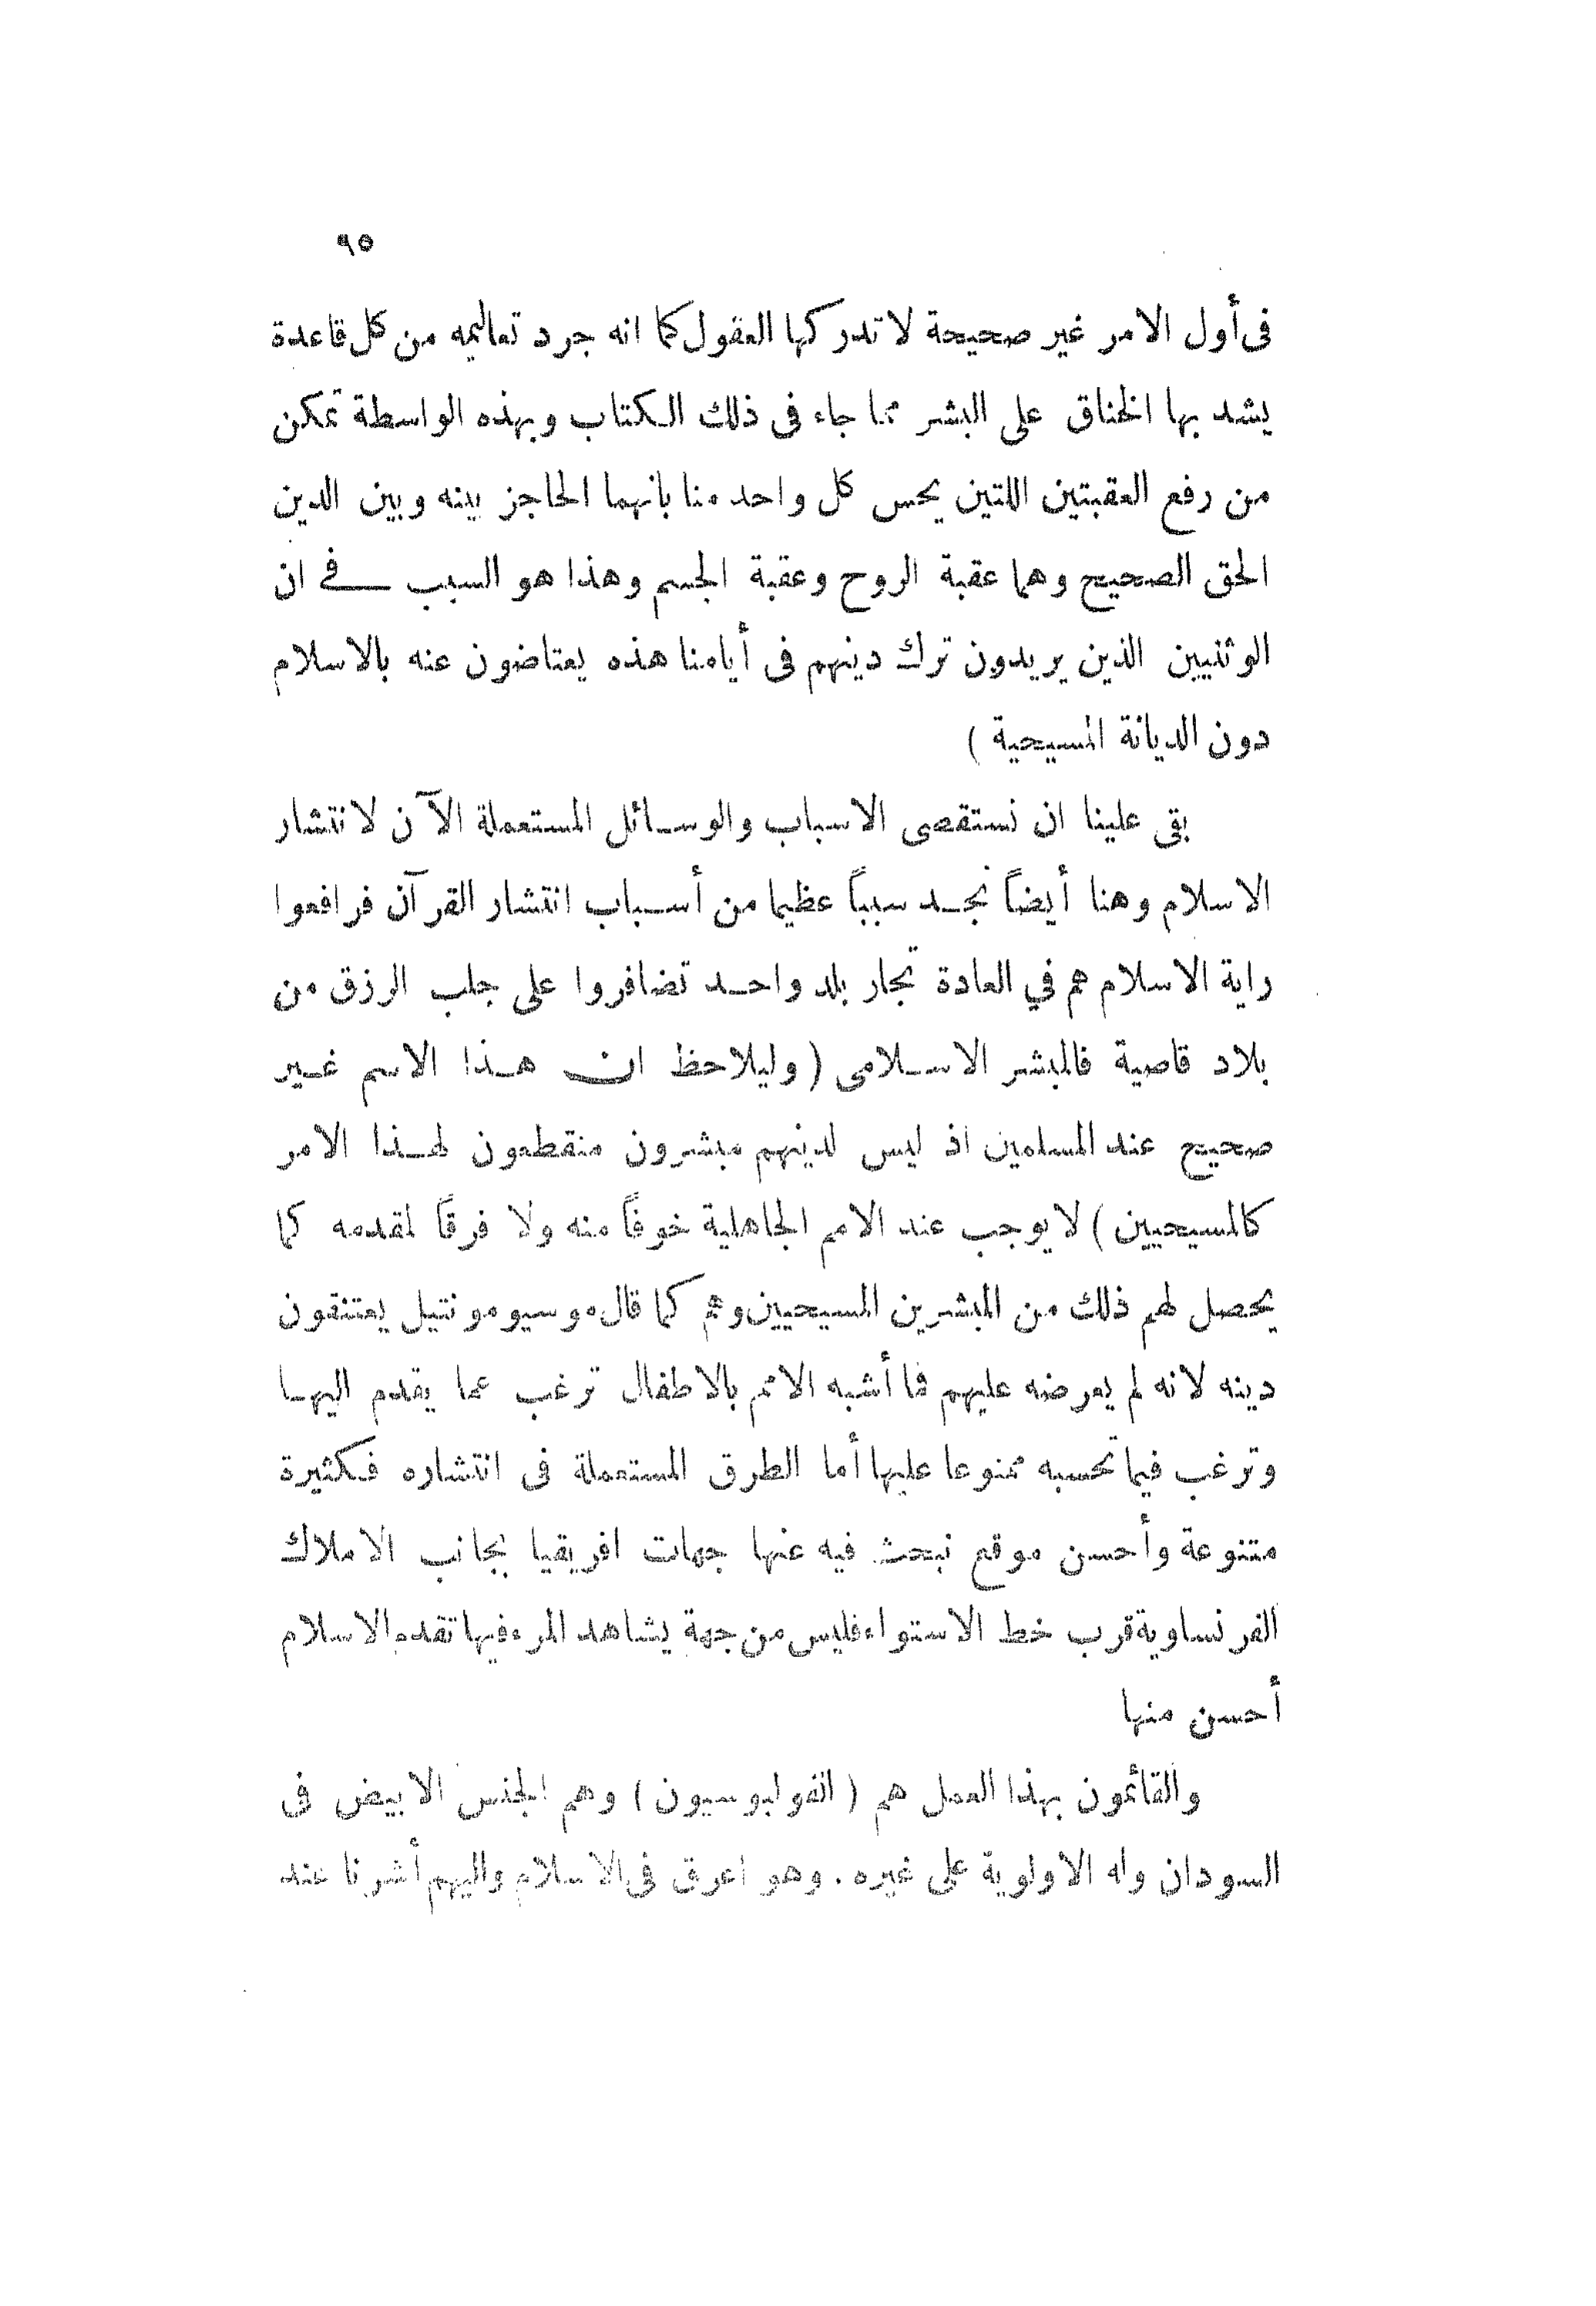 ٩٥
فى أول الامر غير صحيحة لا تدركها العقول كما انه جرد تعاليمه من كل قاعدة
يشد بها الخناق على البشر مما جاء فى ذلك الكتاب وبهذه الواسطة تمكن
من رفع العقبتين اللتين يحس كل واحد منا بانهما الحاجز بينه وبين الدين
الحق الصحيح وهما عقبة الروح وعقبة الجسم وهذا هو السبب فى ان
الوثنيين الذين يريدون ترك دينهم فى أيامنا هذه يعتاضون عنه بالاسلام
دون الديانة المسيحية )
بقى علينا ان نستقصى الاسباب والوسائل المستعملة الآن لانتشار
الاسلام وهنا أيضاً نجد سبباً عظيما من أسباب انتشار القرآن فرافعوا
راية الاسلام هم في العادة تجار بلد واحد تضافروا على جلب الرزق من
بلاد قاصية فالمبشر الاسلامى ( وليلاحظ ان هذا الاسم غير
صحيح عند المسلمين اذ ليس لدينهم مبشرون منقطعون لهذا الامر
كالمسيحيين ) لا يوجب عند الامم الجاهلية خوفاً منه ولا فرقاً لمقدمه كما
يحصل لهم ذلك من المبشرين المسيحيين وهم كما قال موسيو مونتيل يعتنقون
دينه لانه لم يعرضه عليهم فما أشبه الامم بالاطفال ترغب عما يقدم اليها
وترغب فيما تحسبه ممنوعا عليها أما الطرق المستعملة فى انتشاره فكثيرة
متنوعة وأحسن موقع نبحث فيه عنها جهات افريقيا بجانب الاملاك
الفرنساوية قرب خط الاستواء فليس من جهة يشاهد المرء فيها تقدم الاسلام
أحسن منها
والقائمون بهذا العمل هم ( الفولبوسيون ) وهم الجنس الابيض فى
السودان وله الاولوية على غيره . وهو اعرق فى الاسلام واليهم أشرنا عند